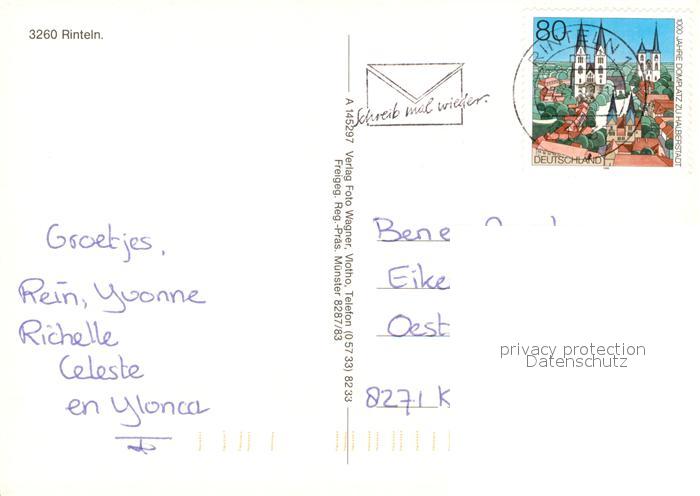 3260 Rinteln.
Schreib mal wieder.
RINTELN 1
80
DEUTSCHLAND
1000 JAHRE DOMPLATZ ZU HALBERSTADT
A 145297 Verlag Foto Wagner, Vlotho, Telefon (0 57 33) 82 33
Freigeg. Reg.-Präs. Münster 8287/83
Groetjes,
Rein, Yvonne
Richelle
Celeste
en Ylonca
Bene
Eike
Oest
8271 K
privacy protection
Datenschutz